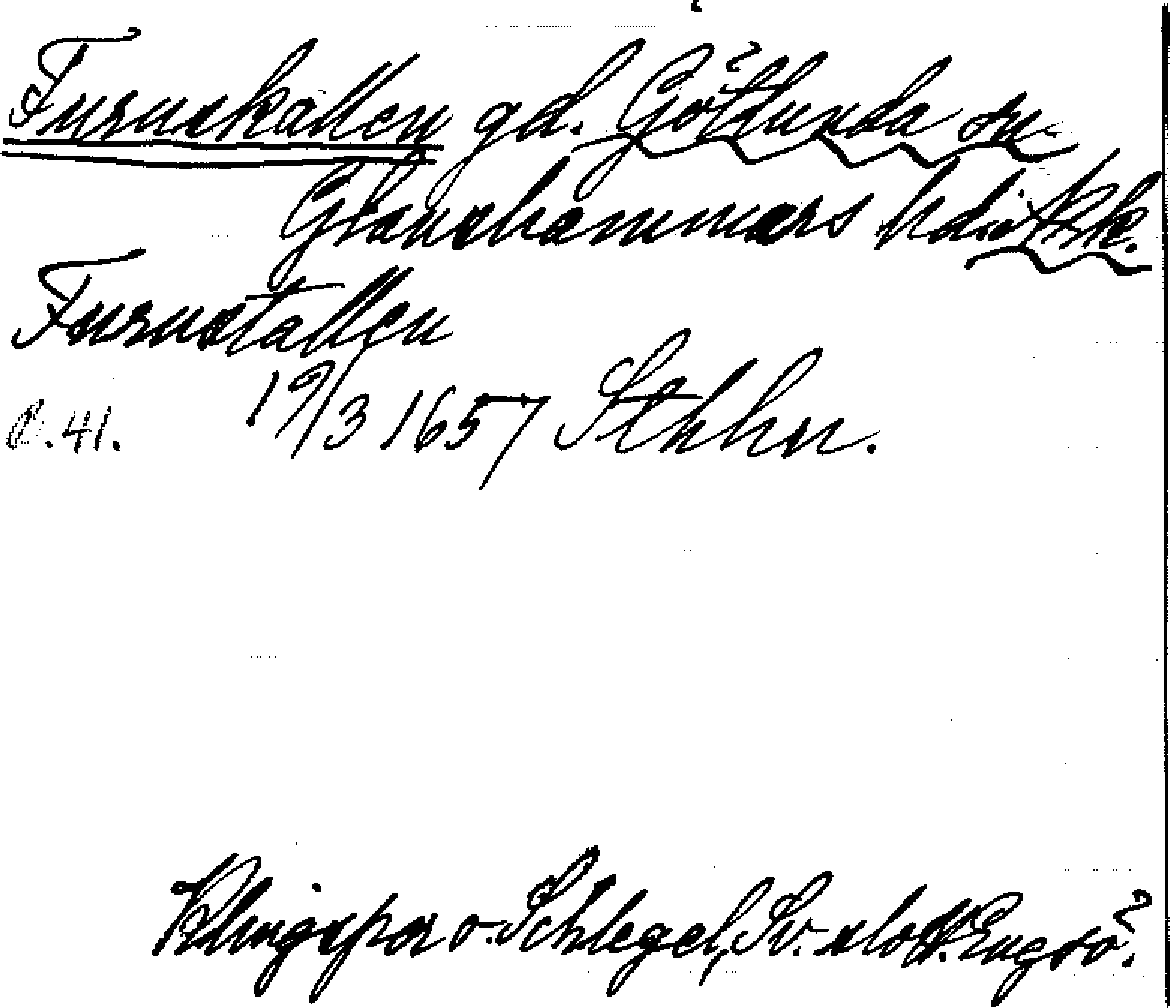 Furuskallen gd. Götlunda sn
Glanshammars hd Ök.
Furustallen
s. 41. 19/3 1657 Sthlm.
Klingspor o. Schlegel, Sv. slott. Engsö.